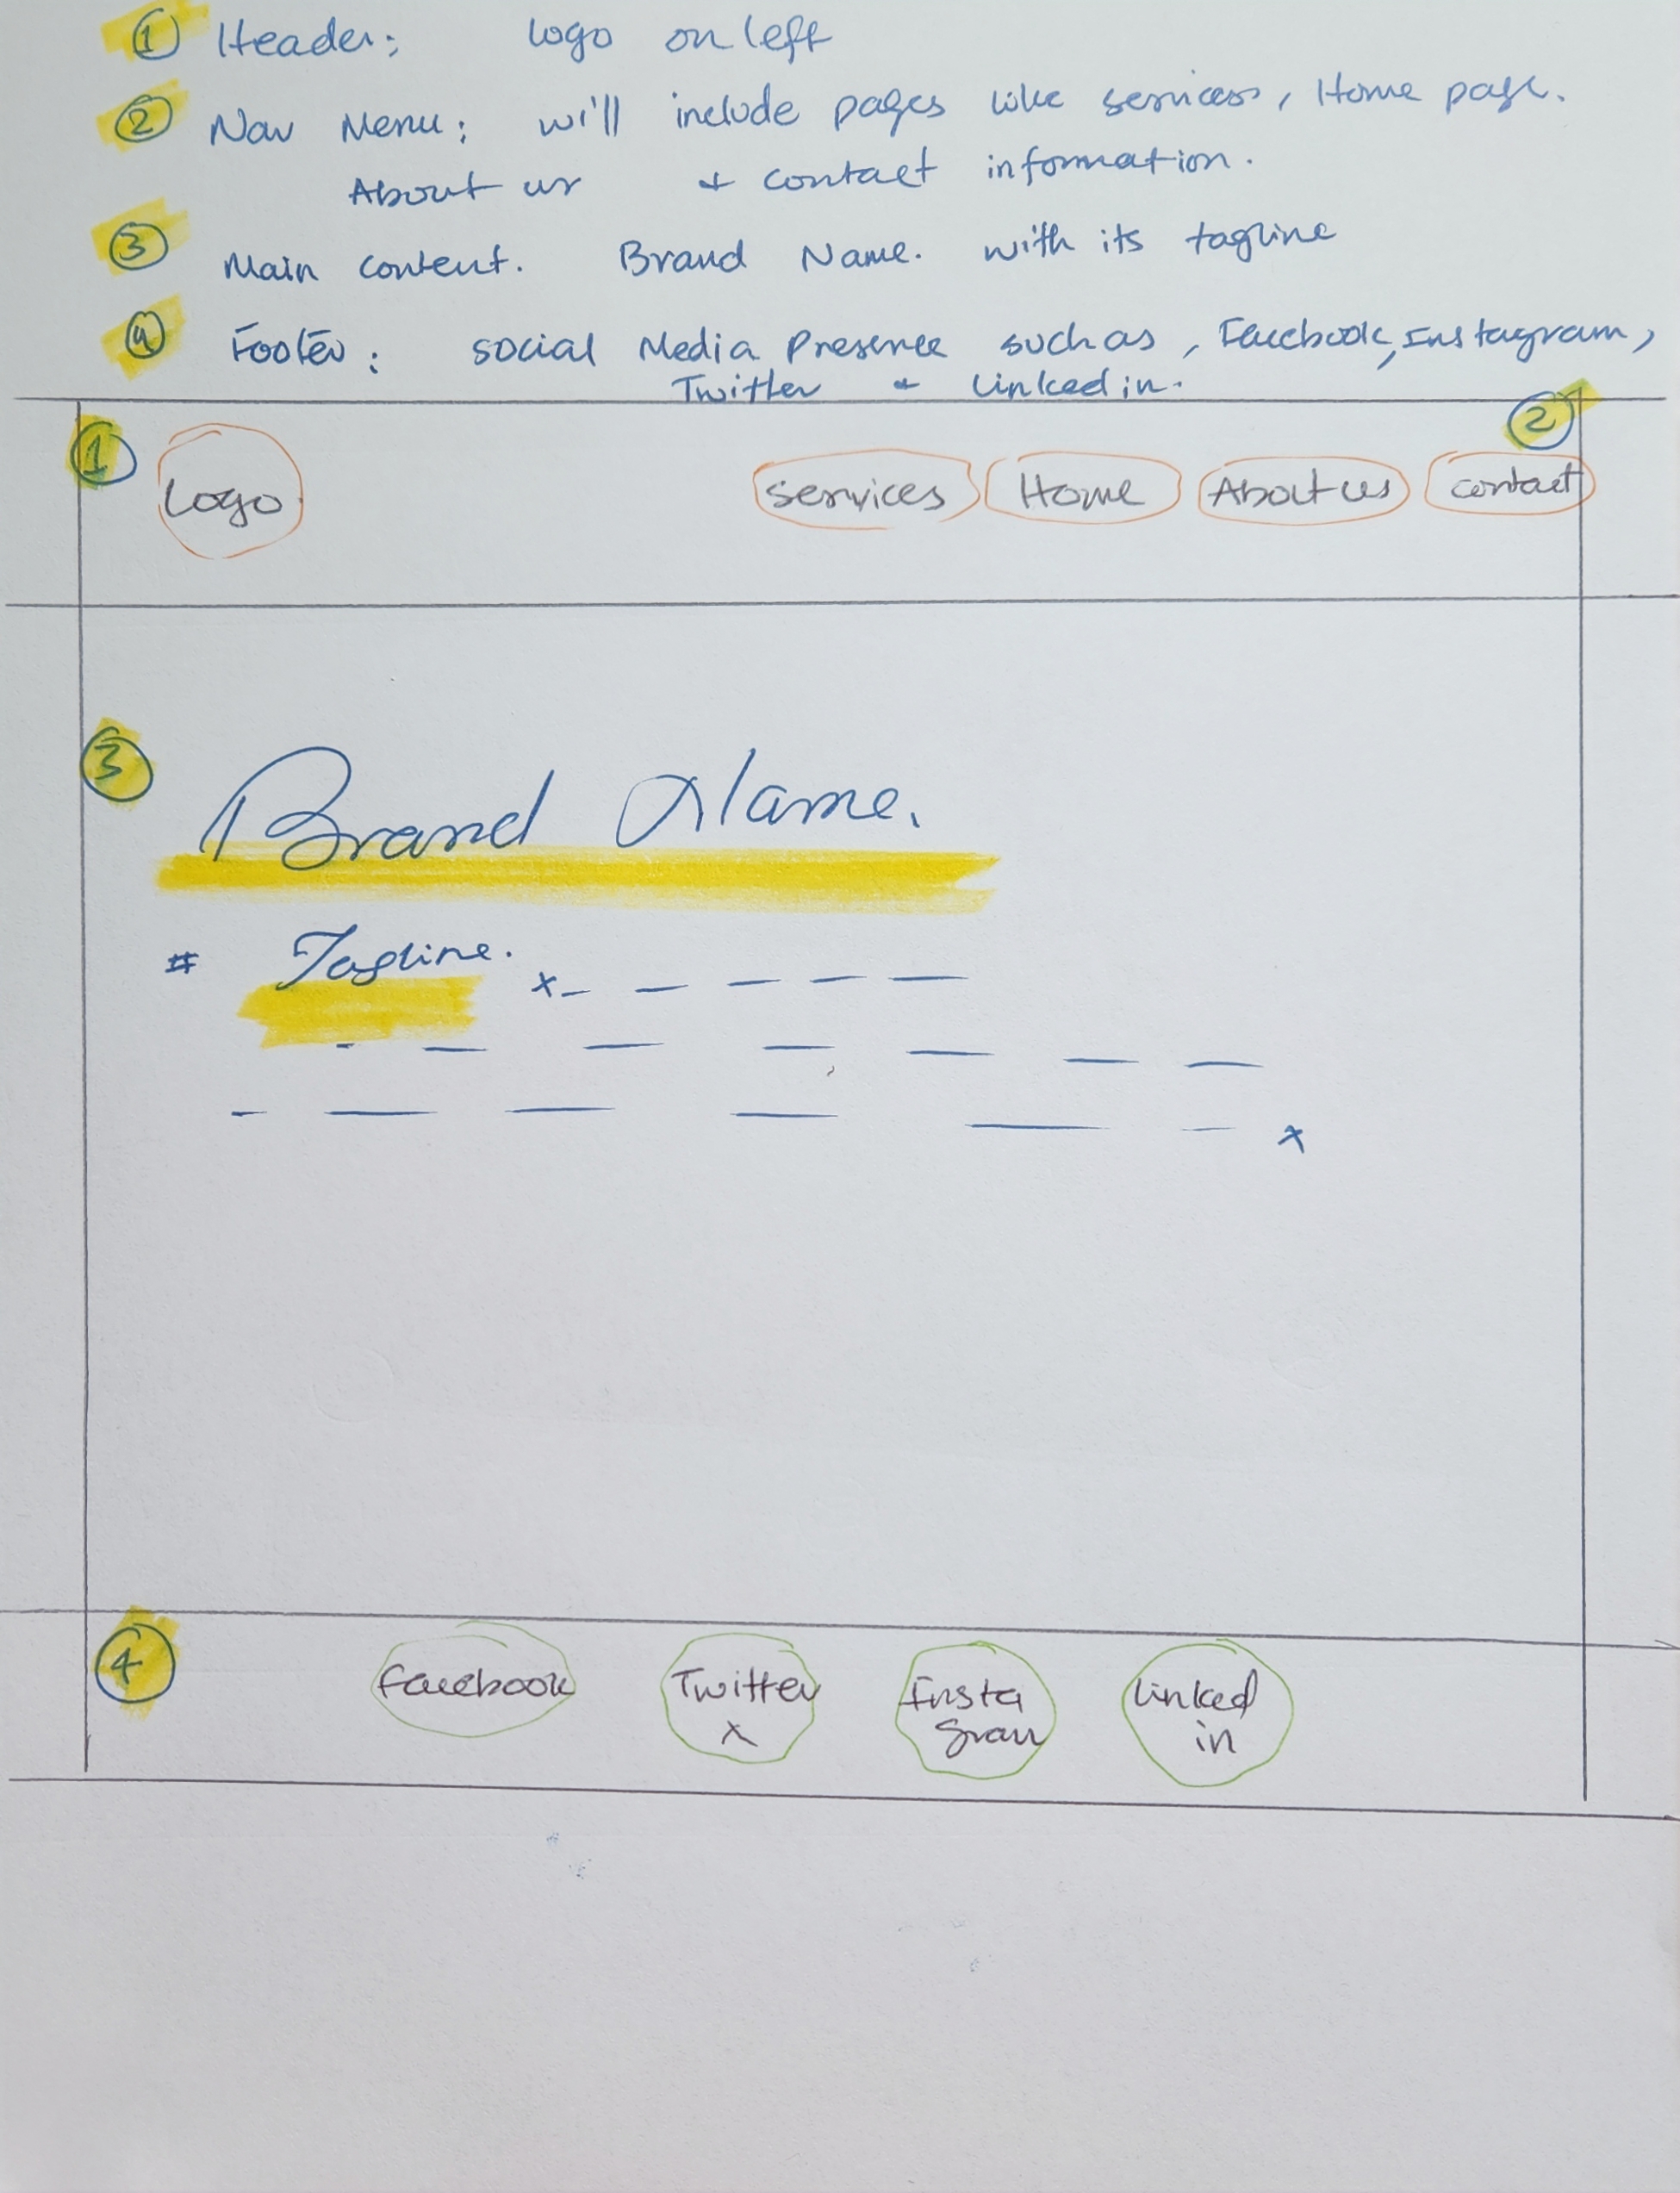 ① Header: logo on left
② Nav Menu: will include pages like services, Home page.
About us & contact information.
③ Main content. Brand Name. with its tagline
④ Footer: social Media Presence such as, Facebook, Instagram,
Twitter & Linkedin.
① ②
Logo services Home About us contact
③
Brand Name.
# Tagline. x
x
④ Facebook Twitter Insta Linked
X gram in